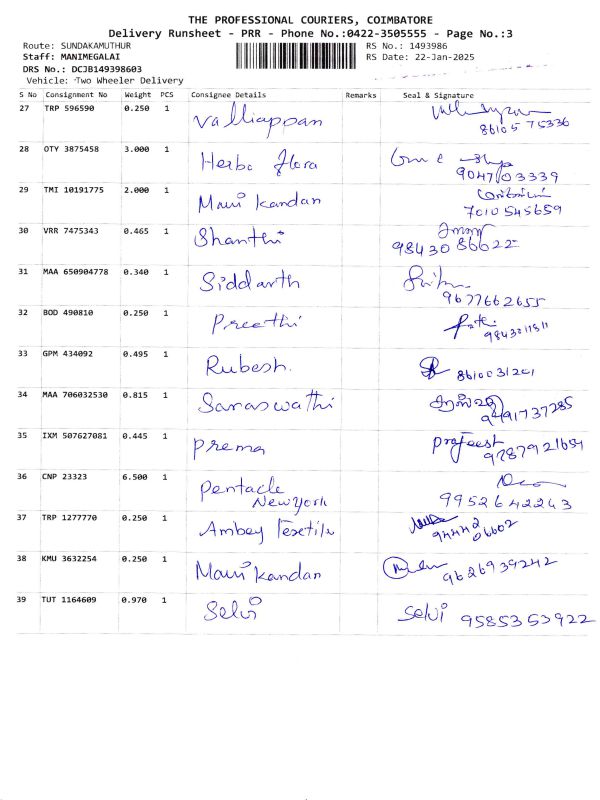 THE PROFESSIONAL COURIERS, COIMBATORE
Delivery Runsheet - PRR - Phone No.:0422-3505555 - Page No.:3
Route: SUNDAKAMUTHUR
RS No.: 1493986
Staff: MANIMEGALAI
RS Date: 22-Jan-2025
DRS No.: DCJB149398603
Vehicle: Two Wheeler Delivery
S No Consignment No Weight PCS Consignee Details Remarks Seal & Signature
27 TRP 596590 0.250 1 Valliappan
8610575336
28 OTY 3875458 3.000 1 Herbo Flora
9047103339
29 TMI 10191775 2.000 1 Mani kandan
7010545659
30 VRR 7475343 0.465 1 Shanthi
9843086622
31 MAA 650904778 0.340 1 Siddarth
9677662655
32 BOD 490810 0.250 1 Preethi
9843011511
33 GPM 434092 0.495 1 Rubesh.
8610031201
34 MAA 706032530 0.815 1 Saraswathi
9491737285
35 IXM 507627081 0.445 1 Prema
36 CNP 23323 6.500 1 Pentacle
Newyork
9952642243
37 TRP 1277770 0.250 1 Ambey Textile
9444206602
38 KMU 3632254 0.250 1 Mani kandan 9626939242
39 TUT 1164609 0.970 1 Selvi Selvi 9585353922